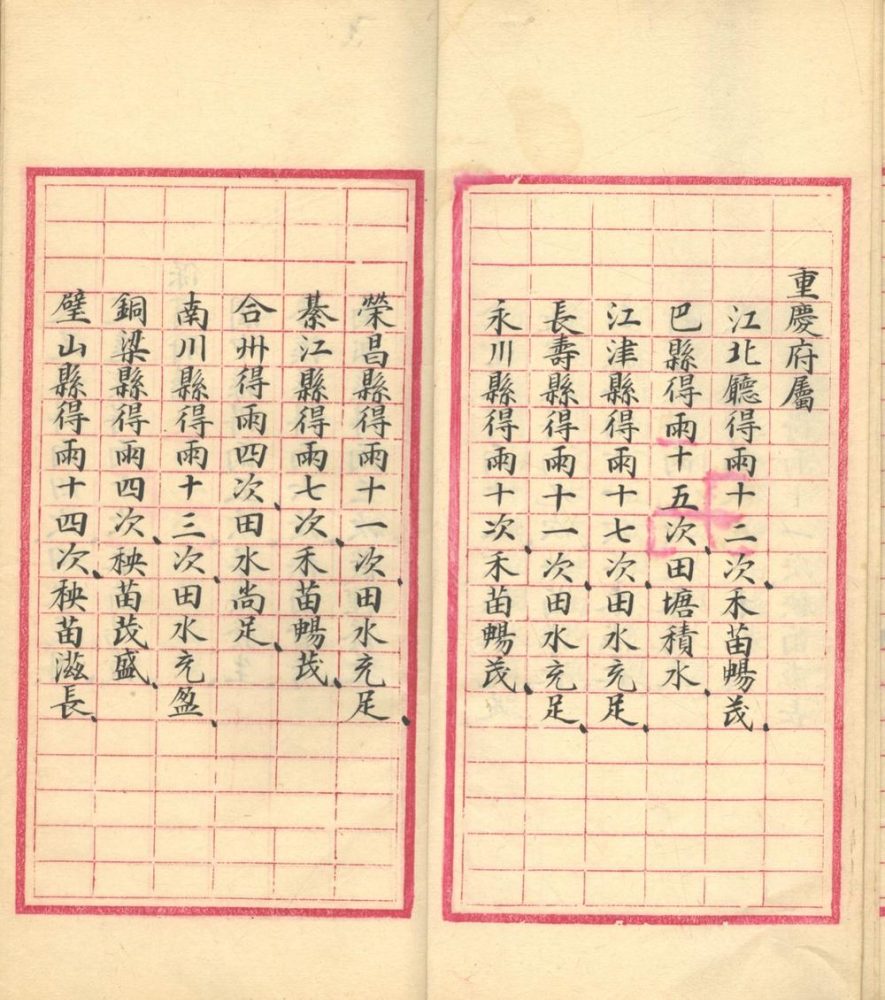 重慶府屬
江北廳得雨十二次、禾苗暢茂、
巴縣得雨十五次、田塘積水、
江津縣得雨十七次、田水充足、
長壽縣得雨十一次、田水充足、
永川縣得雨十次、禾苗暢茂、
榮昌縣得雨十一次、田水充足、
綦江縣得雨七次、禾苗暢茂、
合州得雨四次、田水尚足、
南川縣得雨十三次、田水充盈、
銅梁縣得雨四次、秧苗茂盛、
璧山縣得雨十四次、秧苗滋長、